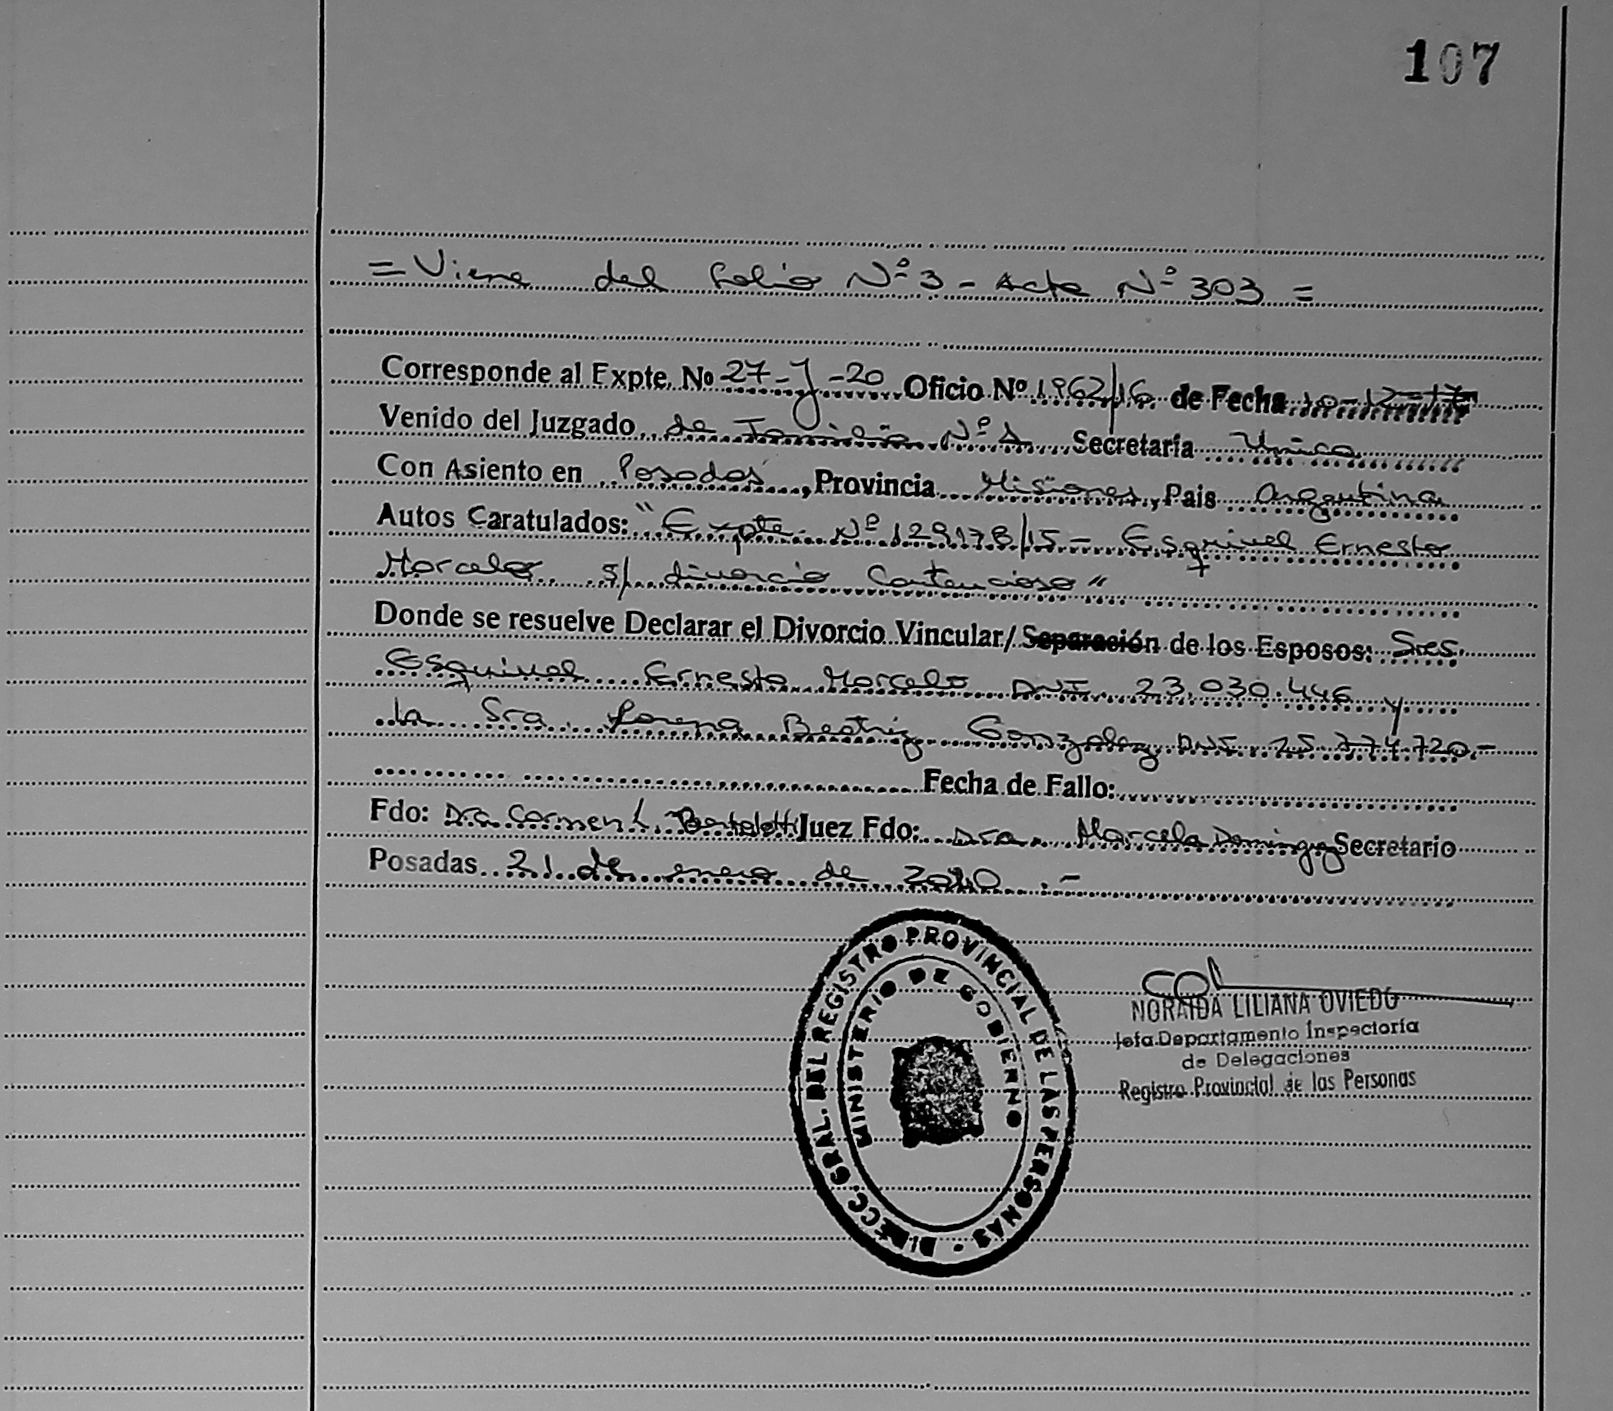 107
= Viene del folio Nº 3 - Acta Nº 303 =
Corresponde al Expte. Nº 27-J-20 Oficio Nº 1962/16 de Fecha 10-12-17
Venido del Juzgado de Familia Nº 1 Secretaría Unica
Con Asiento en Posadas, Provincia Misiones, Pais Argentina
Autos Caratulados: "Expte Nº 129178/15 - Esquivel Ernesto
Marcelo s/ divorcio Contencioso"
Donde se resuelve Declarar el Divorcio Vincular/Separación de los Esposos: Sres.
Esquivel Ernesto Marcelo DNI 23.030.446 y
la Sra. Lorena Beatriz Gonzalez DNI 25.774.720.-
Fecha de Fallo:
Fdo: Dra Carmen L. Bertoletti Juez Fdo: Dra. Marcela Dominguez Secretario
Posadas 21 de enero de 2020 .-
DIRECC. GRAL. DEL REGISTRO PROVINCIAL DE LAS PERSONAS
MINISTERIO DE GOBIERNO
NORAIDA LILIANA OVIEDO
Jefa Departamento Inspectoría
de Delegaciones
Registro Provincial de las Personas